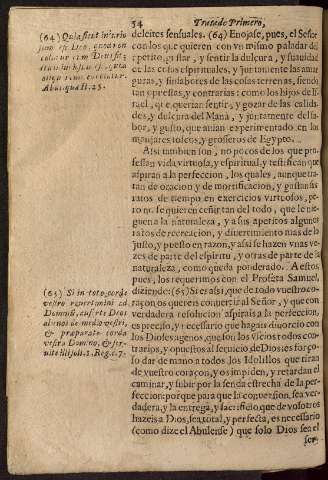 54 Tratado Primero,
deleites sensuales. (64) Enojase, pues, el Señor
con los que quieren con vn mismo paladar del
apetito, gustar, y sentir la dulçura, y suauidad
de las cosas espirituales, y juntamente las amar
guras, y sinsabores de las cosas terrenas, siendo
tan opuestas, y contrarias: como los hijos de Is-
rael, que querian sentir, y gozar de las calida-
des, y dulçura del Maná, y juntamente del sa-
bor, y gusto, que auian experimentado en los
manjares toscos, y groseros de Egypto.
Assi tambien son, no pocos de los que pro-
fessan vida virtuosa, y espiritual, y testifican que
aspiran a la perfeccion, los quales, aunque tra-
tan de oracion y de mortificacion, y gastan sus
ratos de tiempo en exercicios virtuosos, pe-
ro no se quieren ceñir tan del todo, que le nie-
guen a la naturaleza, y a sus apetitos algunos
ratos de recreacion, y diuertimiento mas de lo
justo, y puesto en razon, y assi se hazen vnas ve-
zes de parte del espiritu, y otras de parte de la
naturaleza, como queda ponderado. A estos,
pues, los requerimos con el Profeta Samuel,
diziendo: (65) Si es assi, que de todo vuestro co-
raçon os quereis conuertir al Señor, y que con
verdadera resolucion aspirais a la perfeccion,
es preciso, y necessario que hagais diuorcio con
los Dioses agenos, que son los vicios todos con-
trarios, y opuestos al seruicio de Dios: es forço-
so dar de mano a todos los Idolillos que tiran
de vuestro coraçon, y os impiden, y retardan el
caminar, y subir por la senda estrecha de la per-
feccion: porque para que la conuersion, sea ver-
dadera, y la entrega, y sacrificio que de vosotros
hazeis a Dios, sea total, y perfecta, es necessario
(como dize el Abulense) que solo Dios sea el
ser-
(64)
(65) Si in toto corde
vestro reuertimini ad
Dominũ, auferte Deos
alienos de medio vestri,
& præparate corda
vestra Domino, & ser-
uite illi soli. 1. Reg. c. 7.